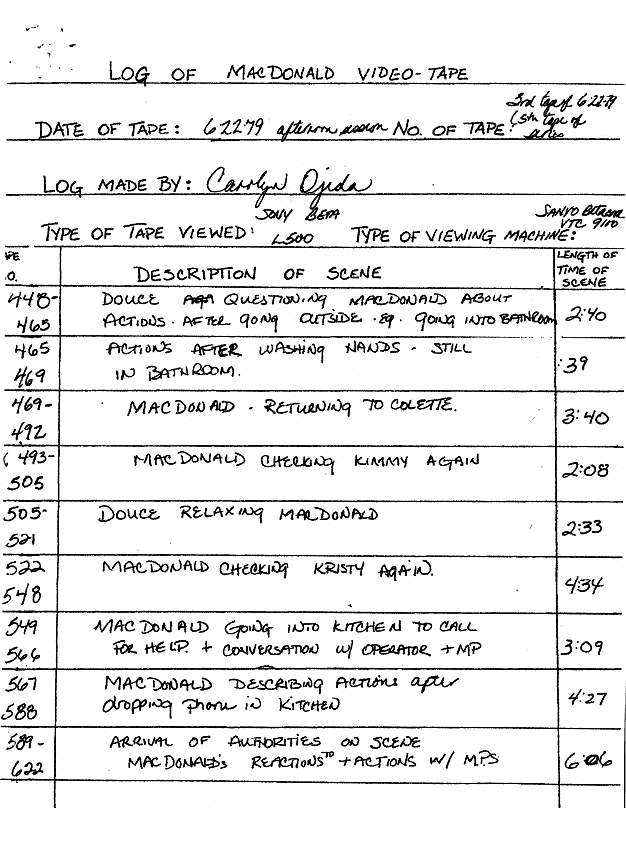 LOG OF MACDONALD VIDEO-TAPE
3rd tape of 6-22-79
(5th tape of
series
DATE OF TAPE: 6-22-79 afternoon session NO. OF TAPE:
LOG MADE BY: Carolyn Ojeda
SONY BETA SANYO Betacord
L500 VTC 9100
TYPE OF TAPE VIEWED: TYPE OF VIEWING MACHINE:
PE DESCRIPTION OF SCENE LENGTH OF
O. TIME OF
SCENE
448- DOUCE QUESTIONING MACDONALD ABOUT 2:40
465 ACTIONS. AFTER GOING OUTSIDE. eg. GOING INTO BATHROOM
465 ACTIONS AFTER WASHING HANDS - STILL :39
469 IN BATHROOM.
469- MACDONALD - RETURNING TO COLETTE. 3:40
492
493- MACDONALD CHECKING KIMMY AGAIN 2:08
505
505- DOUCE RELAXING MACDONALD 2:33
521
522 MACDONALD CHECKING KRISTY AGAIN. 4:34
548
549 MACDONALD GOING INTO KITCHEN TO CALL 3:09
566 FOR HELP. + CONVERSATION W/ OPERATOR + MP
567 MACDONALD DESCRIBING ACTIONS after 4:27
588 dropping phone in KITCHEN
589- ARRIVAL OF AUTHORITIES ON SCENE 6:06
622 MACDONALD'S REACTIONS TO + ACTIONS W/ MPS